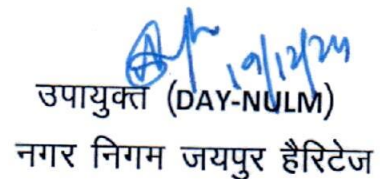 19/12/24
उपायुक्त (DAY-NULM)
नगर निगम जयपुर हैरिटेज